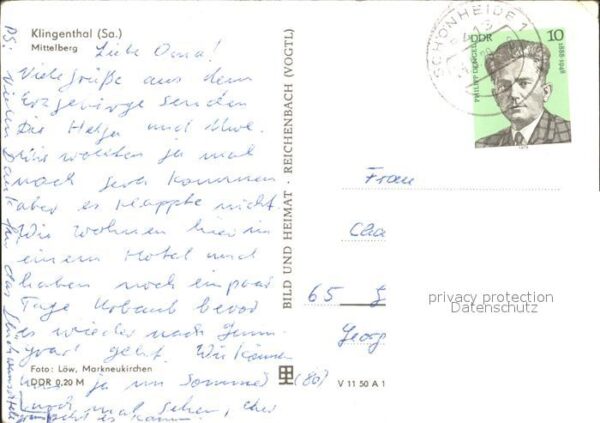 Klingenthal (Sa.)
Mittelberg
Liebe Oma!
Viele Grüße aus dem
Erzgebirge senden
Dir Helga und Uwe.
Wir wollten ja mal
nach kommen
aber es klappte nicht.
Wir wohnen hier in
einem Hotel und
haben noch ein paar
Tage Urlaub bevor
es wieder nach
geht. Wir können
uns ja im Sommer
auch mal sehen, eher
geht es kaum.
PS: Vielen Dank für das
Foto: Löw, Markneukirchen
DDR 0,20 M
BILD UND HEIMAT · REICHENBACH (VOGTL)
(80)
V 11 50 A 1
SCHÖNHEIDE 1
DDR 10
PHILIPP DENGEL
1888-1948
Frau
Cla
65 G
Georg
privacy protection
Datenschutz